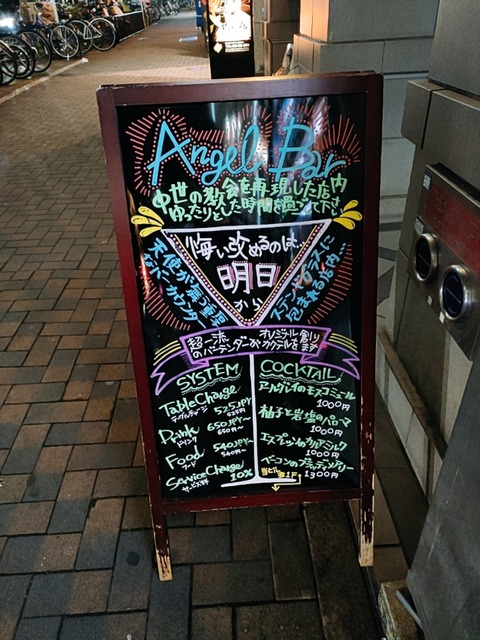 Angel Bar
中世の教会を再現した店内
ゆったりとした時間を過ごして下さい
悔い改めるのは…
明日
から
天使が舞い降
なバーカウンター
ステンドグラスに
包まれる店内…
超一流
のバーテンダーが
オリジナル創り
カクテルを ます
SYSTEM
Table Charge
テーブルチャージ
525JPY
525円
Drink
ドリンク
650JPY~
650円~
Food
フード
540JPY~
540円~
Service Charge
サービス料
10%
COCKTAIL
アールグレイのモスコミュール
1000円
柚子と岩塩のパロマ
1000円
エスプレッソのカルアミルク
1000円
ベーコンのブラッディメアリー
1300円
当ビル B1F